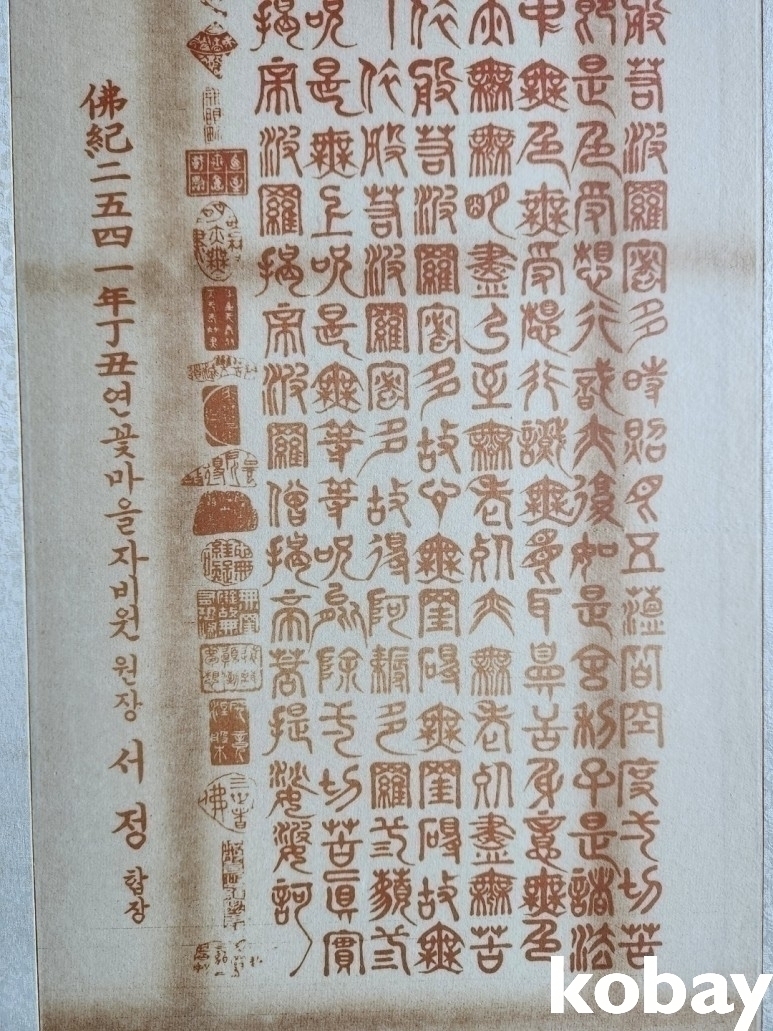 般若波羅蜜多時照見五蘊皆空度一切苦
卽是色受想行識亦復如是舍利子是諸法
中無色無受想行識無眼耳鼻舌身意無色
亦無無明盡乃至無老死亦無老死盡無苦
依般若波羅蜜多故心無罣礙無罣礙故無
依般若波羅蜜多故得阿耨多羅三藐三
呪是無上呪是無等等呪能除一切苦眞實
揭帝波羅揭帝波羅僧揭帝菩提娑婆訶
佛紀二五四一年丁丑연꽃마을자비원 원장 서정 합장
kobay